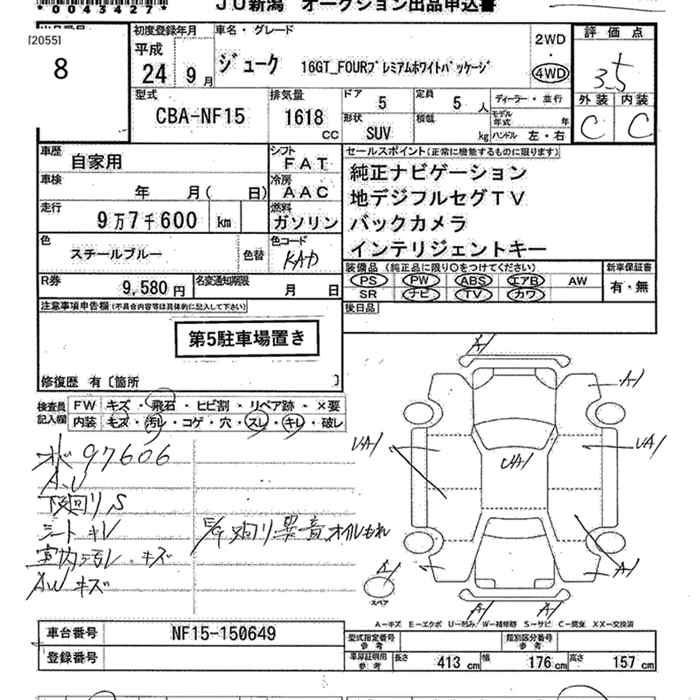 *0043427*
JU新潟 オークション出品申込書
[2055]
8
初度登録年月
平成
24年 9月
車名・グレード
ジューク 16GT_FOURプレミアムホワイトパッケージ
2WD
・
4WD
評価点
3.5
外装 内装
C C
型式
CBA-NF15
排気量
1618
CC
ドア
5
定員
5人
形状
SUV
積載
kg
ディーラー・並行
モデル年式 年
ハンドル 左・右
車歴
自家用
シフト
FAT
車検
年 月( 日)
冷房
AAC
走行
9万7千600 km
燃料
ガソリン
色
スチールブルー
色替
色コード
KAD
R券
9,580円
名変通知期限
月 日
セールスポイント(正常に機能するものに限ります)
純正ナビゲーション
地デジフルセグTV
バックカメラ
インテリジェントキー
装備品(純正品に限り○をつけてください)
PS PW ABS エアB AW
SR ナビ TV カワ
新車保証書
有・無
後日品
注意事項申告欄(不具合内容等は具体的に記入して下さい)
第5駐車場置き
修復歴 有〔箇所 〕
検査員記入欄
FW キズ・飛石・ヒビ割・リペア跡・×要
内装 キズ・汚レ・コゲ・穴・スレ・キレ・破レ
97606
A.U
下回りS
シートキレ
E/G廻り異音オイルもれ
室内汚レ・キズ
AWキズ
A1
A1
UA1
UA1
UA1
A1
A1
A1
A1
スペア
A－キズ E－エクボ U－凹み W－補修跡 S－サビ C－腐食 XX－交換済
車台番号
NF15-150649
登録番号
型式指定番号
参考
類別区分番号
参考
車庫証明用
参考
長さ 413 cm 幅 176 cm 高さ 157 cm